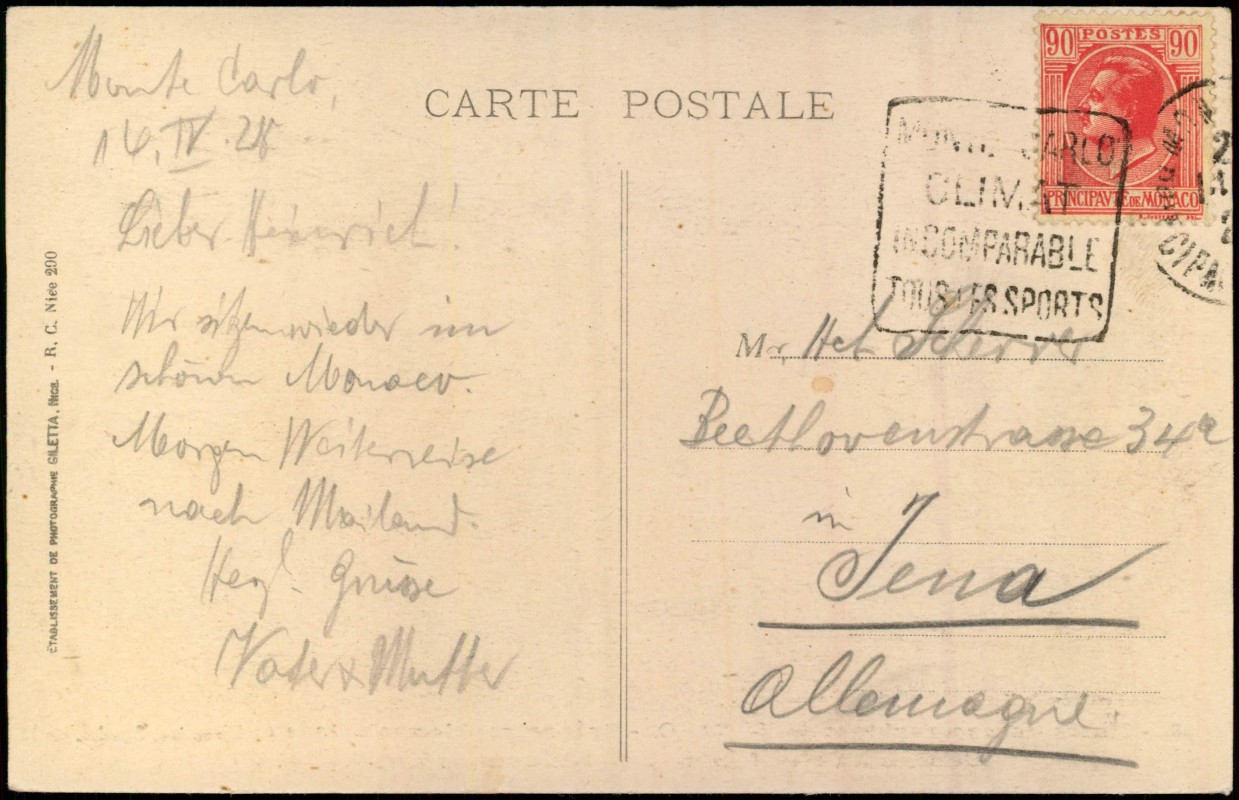 Monte Carlo,
14. IV.
Lieber Heinrich!
Wir sitzen wieder im
schönen Monaco.
Morgen Weiterreise
nach Mailand.
Herzl. Grüsse
Vater & Mutter
ÉTABLISSEMENT DE PHOTOGRAPHIE GILETTA, NICE. - R. C. Nice 290
CARTE POSTALE
90 POSTES 90
PRINCIPAVTE DE MONACO
MONTE CARLO
CLIMAT
INCOMPARABLE
TOUS LES SPORTS
M
Scherrer
Beethovenstrasse 34a
in
Jena
Allemagne.